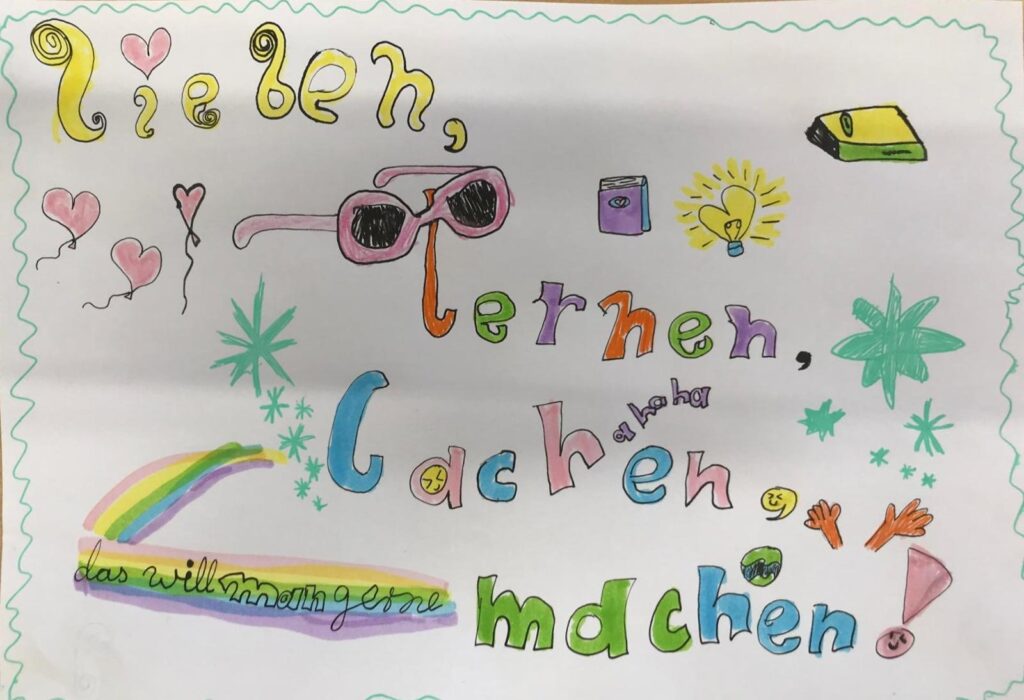 lieben,
lernen,
ahaha
lachen,
das will man gerne
machen!